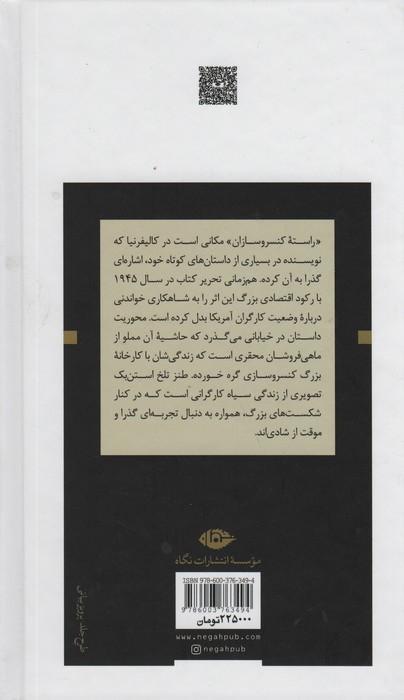 «راستهٔ کنسروسازان» مکانی است در کالیفرنیا که
نویسنده در بسیاری از داستان‌های کوتاه خود، اشاره‌ای
گذرا به آن کرده. هم‌زمانی تحریر کتاب در سال ۱۹۴۵
با رکود اقتصادی بزرگ این اثر را به شاهکاری خواندنی
دربارهٔ وضعیت کارگران آمریکا بدل کرده است. محوریت
داستان در خیابانی می‌گذرد که حاشیهٔ آن مملو از
ماهی‌فروشان محقری است که زندگی‌شان با کارخانهٔ
بزرگ کنسروسازی گره خورده. طنز تلخ استن‌بک
تصویری از زندگی سیاه کارگرانی است که در کنار
شکست‌های بزرگ، همواره به دنبال تجربه‌ای گذرا و
موقت از شادی‌اند.
مؤسسهٔ انتشارات نگاه
ISBN: 978-600-376-349-4
9 786003 763494
۲۲۵۰۰۰تومان
www.negahpub.com
negahpub
طرح جلد: پرویز بیانی